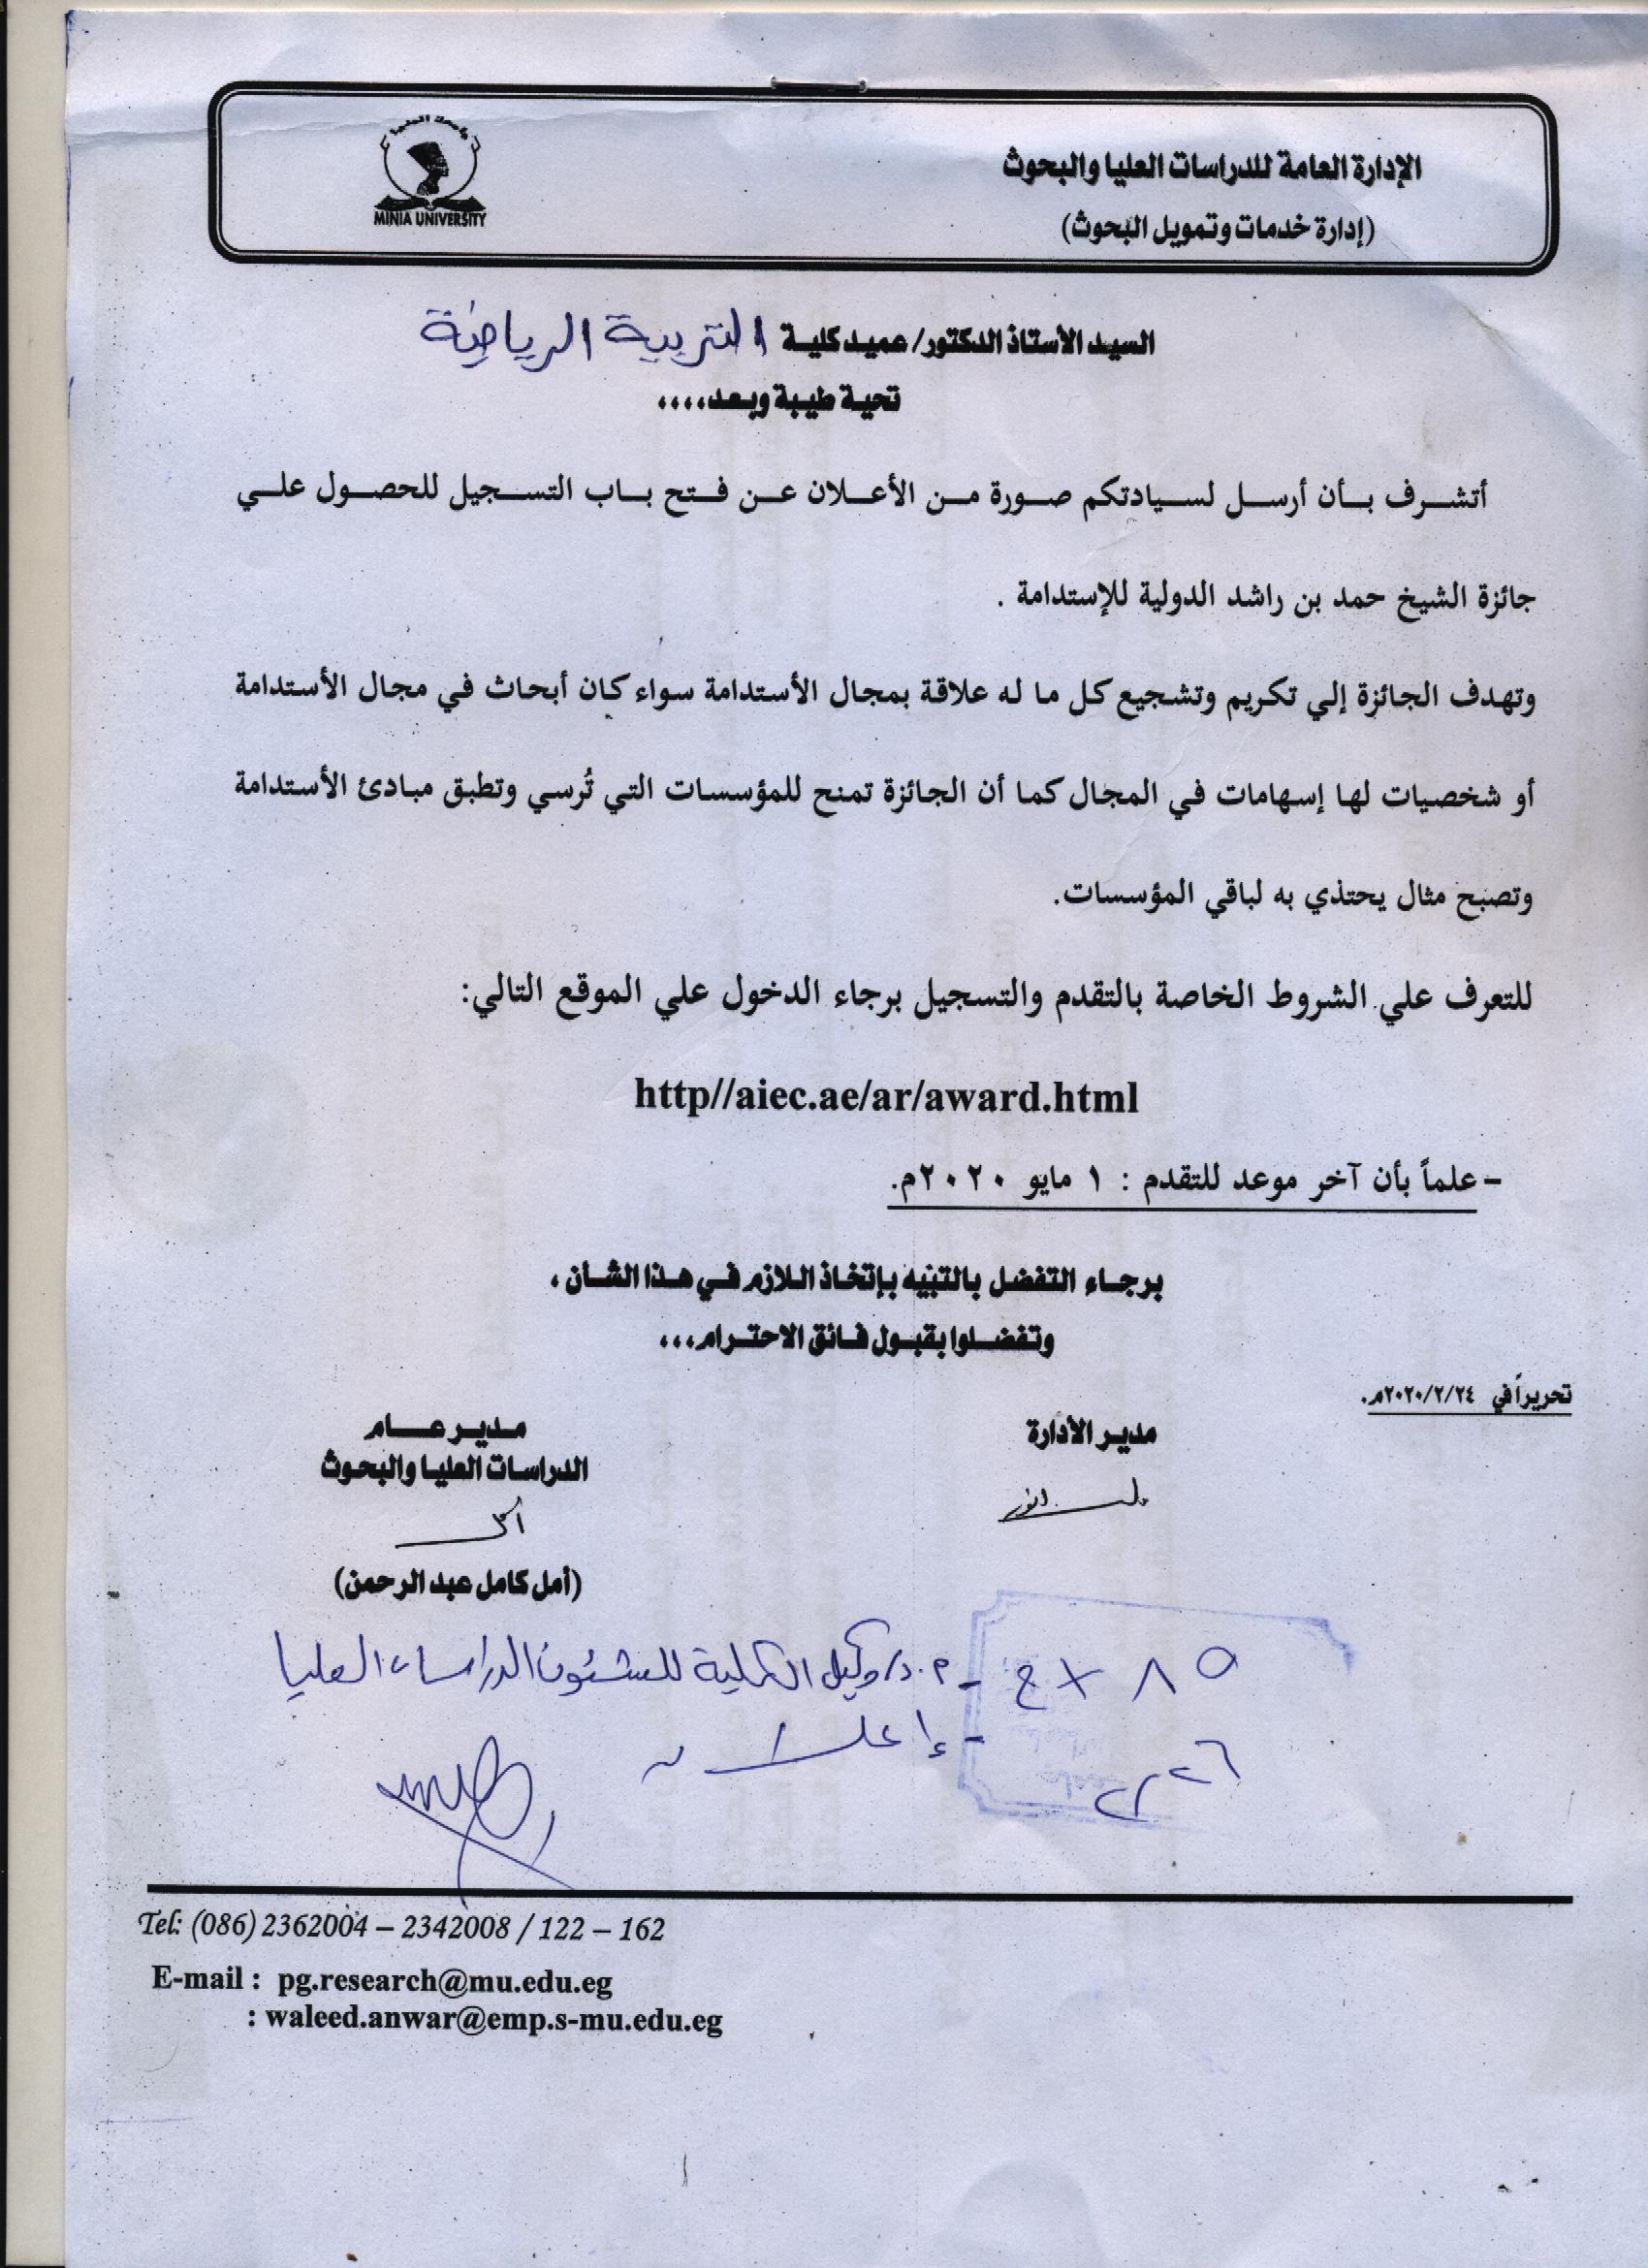 جامعة المنيا
MINIA UNIVERSITY
الإدارة العامة للدراسات العليا والبحوث
(إدارة خدمات وتمويل البحوث)
السيد الأستاذ الدكتور/ عميد كلية التربية الرياضية
تحية طيبة وبعد،،،،
أتشرف بأن أرسل لسيادتكم صورة من الأعلان عن فتح باب التسجيل للحصول علي
جائزة الشيخ حمد بن راشد الدولية للإستدامة .
وتهدف الجائزة إلي تكريم وتشجيع كل ما له علاقة بمجال الأستدامة سواء كان أبحاث في مجال الأستدامة
أو شخصيات لها إسهامات في المجال كما أن الجائزة تمنح للمؤسسات التي تُرسي وتطبق مبادئ الأستدامة
وتصبح مثال يحتذي به لباقي المؤسسات.
للتعرف علي الشروط الخاصة بالتقدم والتسجيل برجاء الدخول علي الموقع التالي:
http//aiec.ae/ar/award.html
- علماً بأن آخر موعد للتقدم : ١ مايو ٢٠٢٠م.
برجاء التفضل بالتنبيه بإتخاذ اللازم في هذا الشأن ،
وتفضلوا بقبول فائق الاحترام،،،
تحريراً في ٢٠٢٠/٢/٢٤م.
مدير الأدارة
مدير عام
الدراسات العليا والبحوث
أمل
(أمل كامل عبد الرحمن)
- م.د/ وكيل الكلية للشئون الدراسات العليا
- إعلان
Tel: (086) 2362004 – 2342008 / 122 – 162
E-mail : pg.research@mu.edu.eg
: waleed.anwar@emp.s-mu.edu.eg